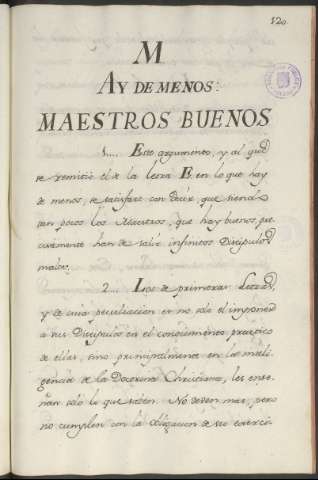 120.
M
AY DE MENOS:
MAESTROS BUENOS
1.... Este argumento, y al que
se remitio el de la letra B en lo que hay
de menos, se satisface con decir, que siendo
tan pocos los Maestros, que hay buenos, pre
cisamente han de salir infinitos Discipulos
malos.
2... Los de primeras Letras,
y de cuia peculiacion es no solo el imponer
a sus Discipulos en el conocimiento practico
de ellas, sino principalmente en la inteli
gencia de la Doctrina Christiana, les ense
ñan solo lo que saben. No deben mas, pero
no cumplen con la obligacion de su exerci